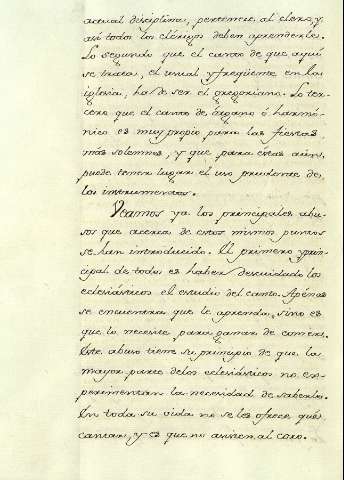 actual disciplina, pertenece al clero, y
asi todos los clérigos deben aprenderle.
Lo segundo que el canto de que aquí
se trata, el usual y freqüente en la
iglesia, ha de ser el gregoriano. Lo ter-
cero que el canto de órgano ó harmó-
nico es muy propio para las fiestas
más solemnes, y que para éstas aún
puede tener lugar el uso prudente de
los instrumentos.
Veamos ya los principales abu-
sos que acerca de estos mismos puntos
se han introducido. El primero y prin-
cipal de todos es haber descuidado los
eclesiásticos el estudio del canto. Apénas
se encuentra que le aprenda, sino es
que lo necesite para ganar de comer.
Este abuso tiene su principio de que la
mayor parte de los eclesiásticos no en-
perimentan la necesidad de saberlo.
En toda su vida no se les ofrece qué
cantar, y es que no asisten al coro.